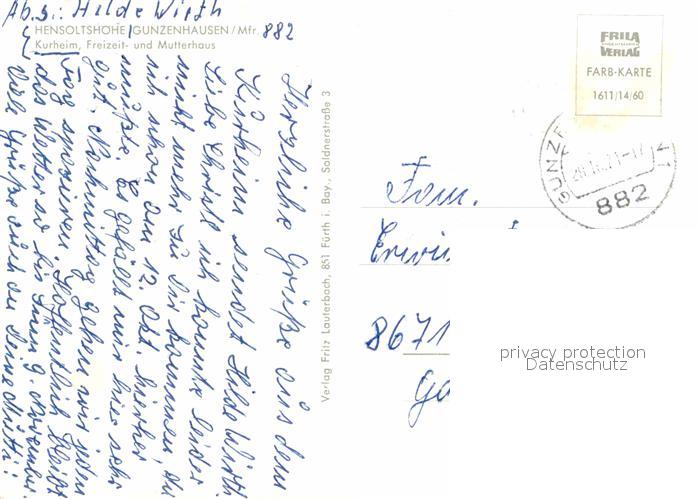 Abs: Hilde Wirth
HENSOLTSHÖHE GUNZENHAUSEN / Mfr. 882
Kurheim, Freizeit- und Mutterhaus
Herzliche Grüße aus dem
Kurheim sendet Hilde Wirth.
Liebe Christl ich konnte leider
nicht mehr zu Dir kommen, da
ich schon den 12. Okt. hierher
mußte. Es gefällt mir hier sehr
gut. Nachmittag gehen wir jeden
Tag spazieren. Hoffentlich bleibt
das Wetter so bis zum 9. November.
Viele Grüße auch an Deine Mutti!
Verlag Fritz Lauterbach, 851 Fürth i. Bay., Soldnerstraße 3
FRILA
VERLAG
FARB-KARTE
1611/14/60
GUNZE
882
Fam.
Erwi
8671
Ga
privacy protection
Datenschutz